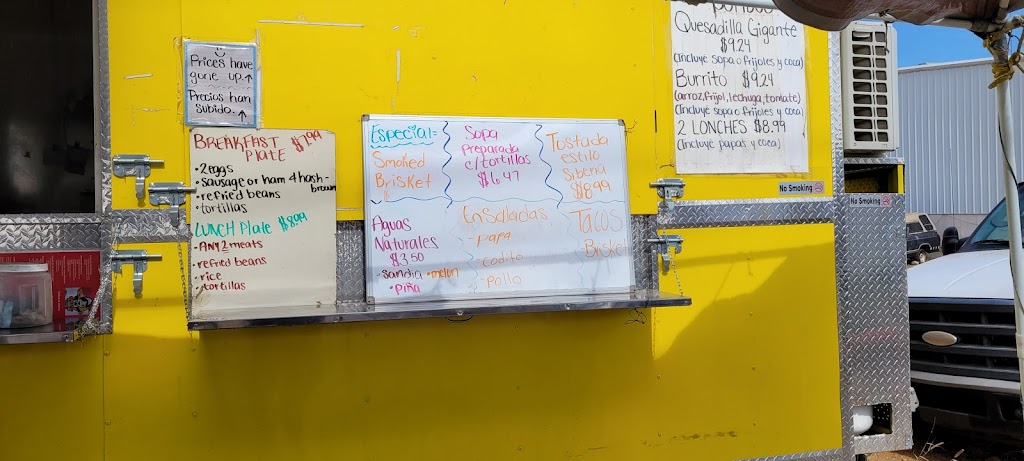 Prices have
gone up.↑
Precios han
Subido.↑
BREAKFAST $7.99
PLATE
• 2 eggs
• sausage or ham & hash-
brown
• refried beans
• tortillas
LUNCH Plate $8.99
• ANY 2 meats
• refried beans
• rice
• tortillas
Especial:
Smoked
Brisket
Aguas
Naturales
$3.50
• sandia • melon
• piña
Sopa
Preparada
c/tortillas
$6.47
Ensaladas
- papa
- codito
- pollo
Tostada
estilo
Siberia
$8.99
Tacos
Brisket
Quesadilla Gigante
$9.24
(incluye sopa o frijoles y coca)
Burrito $9.24
(arroz, frijol, lechuga, tomate)
(incluye sopa o frijoles y coca)
2 LONCHES $8.99
(incluye papas y coca)
No Smoking
No Smoking